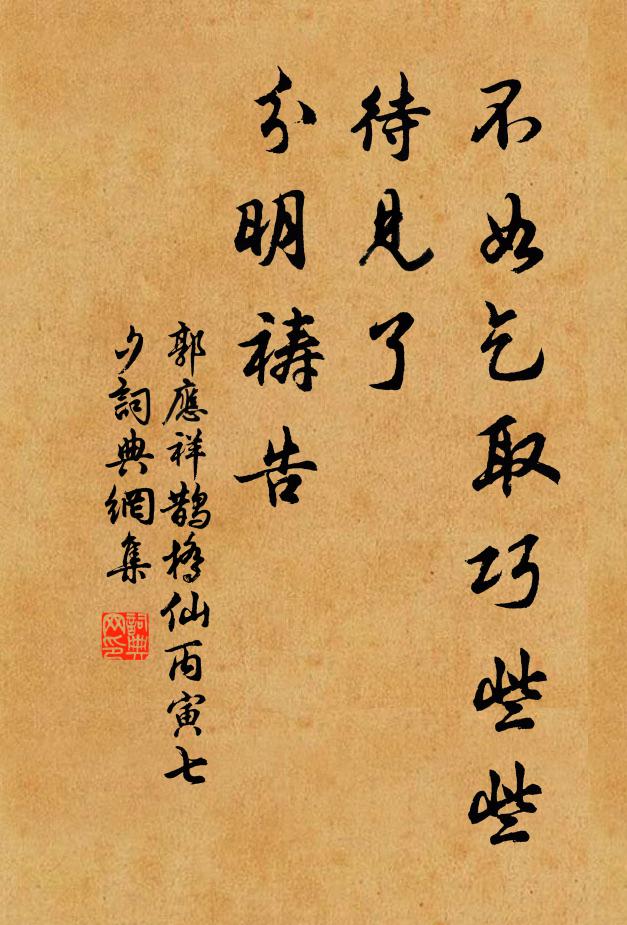 不如乞取巧些些
待見了
分明禱告
郭應祥鵲橋仙丙寅七
夕詞典網集
詞典
网印